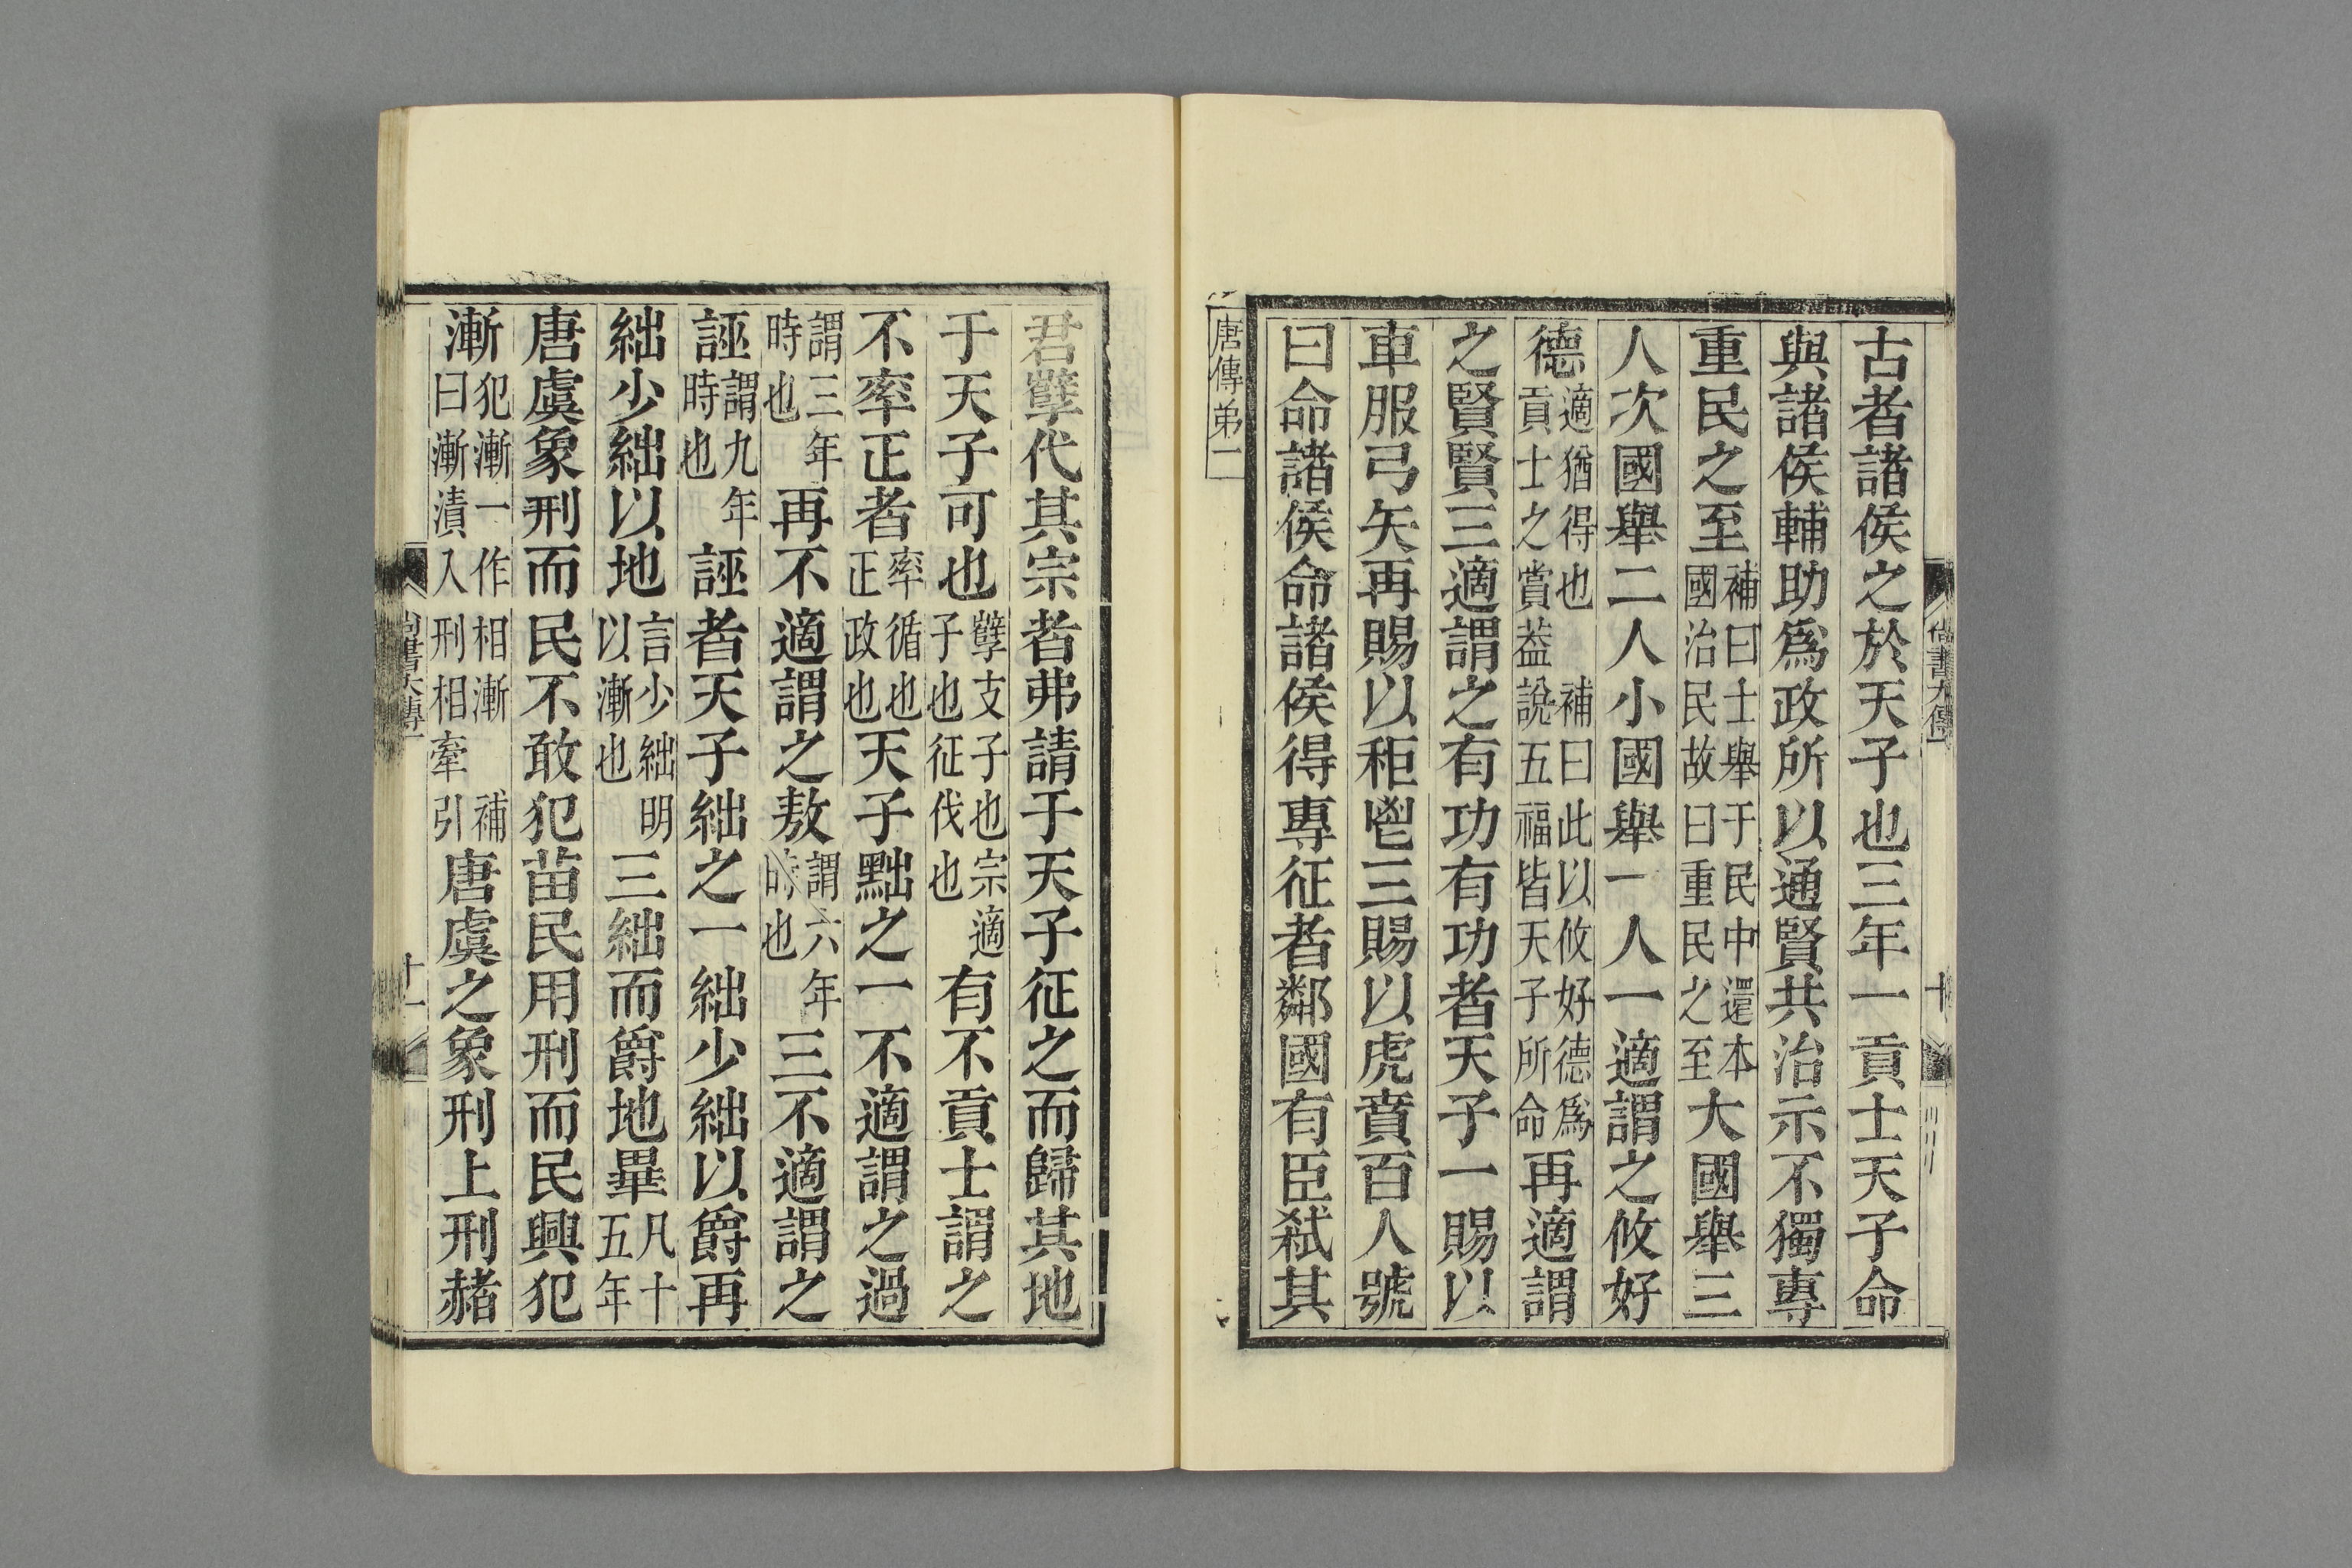 尚書大傳一
十
古者諸侯之於天子也三年一貢士天子命
與諸侯輔助爲政所以通賢共治示不獨專
重民之至補曰士舉于民中還本國治民故曰重民之至大國舉三
人次國舉二人小國舉一人一適謂之攸好
德適猶得也補曰此以攸好德爲貢士之賞葢說五福皆天子所命再適謂
之賢賢三適謂之有功有功者天子一賜以
車服弓矢再賜以秬鬯三賜以虎賁百人號
曰命諸侯命諸侯得專征者鄰國有臣弑其
唐傳弟二
君孼代其宗者弗請于天子征之而歸其地
于天子可也孼支子也宗適子也征伐也有不貢士謂之
不率正者率循也正政也天子黜之一不適謂之過
謂三年時也再不適謂之敖謂六年時也三不適謂之
誣謂九年時也誣者天子絀之一絀少絀以爵再
絀少絀以地言少絀明以漸也三絀而爵地畢凡十五年
唐虞象刑而民不敢犯苗民用刑而民興犯
漸犯漸一作相漸補曰漸漬入刑相牽引唐虞之象刑上刑赭
尚書大傳一
十一